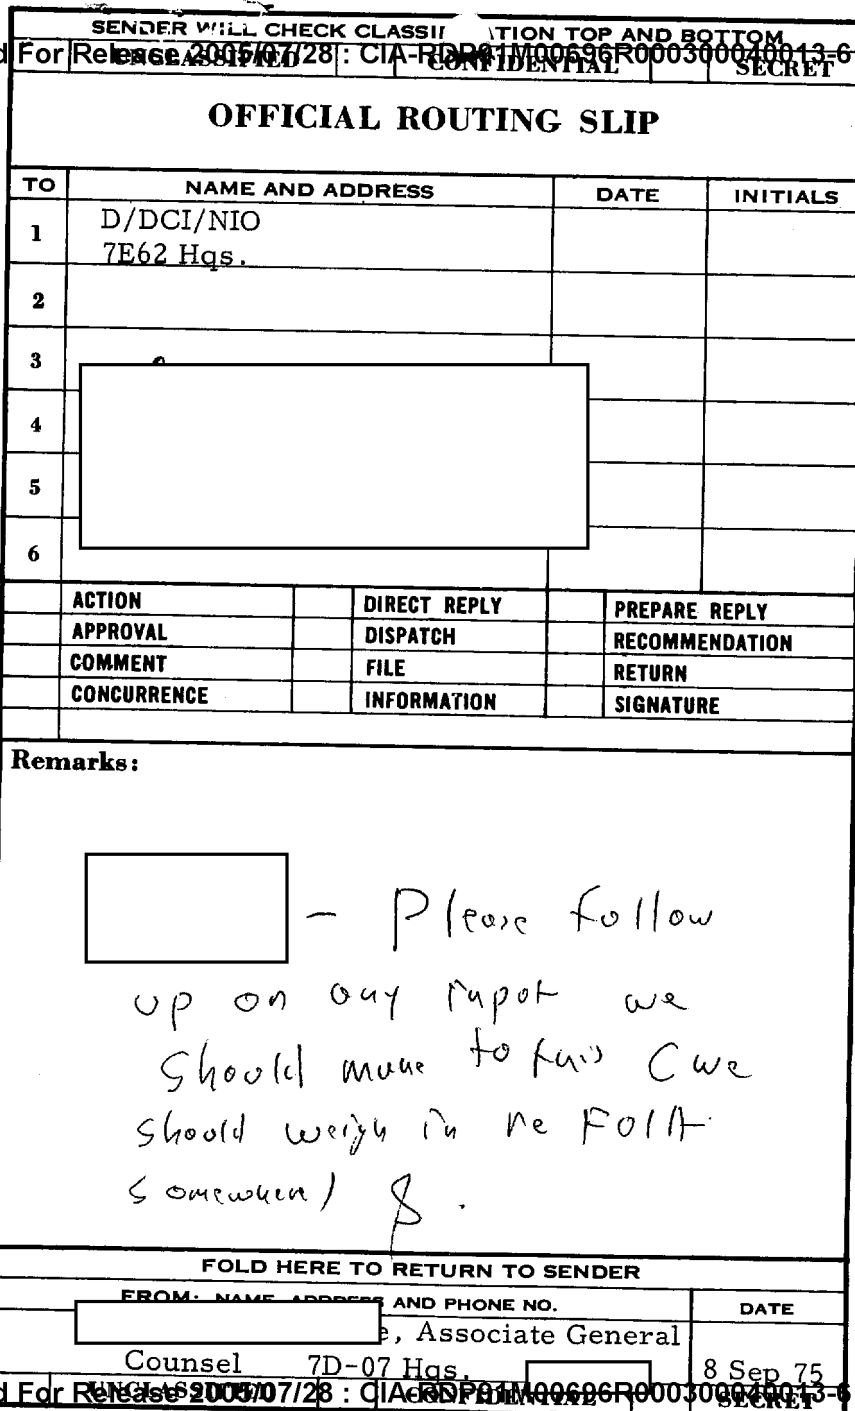 SENDER WILL CHECK CLASSIFICATION TOP AND BOTTOM
For Release 2005/07/28 : CIA-RDP91M00696R000300040013-6
UNCLASSIFIED CONFIDENTIAL SECRET
OFFICIAL ROUTING SLIP
TO NAME AND ADDRESS DATE INITIALS
1 D/DCI/NIO
7E62 Hqs.
2
3
4
5
6
ACTION DIRECT REPLY PREPARE REPLY
APPROVAL DISPATCH RECOMMENDATION
COMMENT FILE RETURN
CONCURRENCE INFORMATION SIGNATURE
Remarks:
— Please follow
up on any input we
should make to this (we
should weigh in re FOIA
somewhere)
FOLD HERE TO RETURN TO SENDER
FROM: NAME, ADDRESS AND PHONE NO. DATE
, Associate General
Counsel 7D-07 Hqs. 8 Sep 75
For Release 2005/07/28 : CIA-RDP91M00696R000300040013-6
UNCLASSIFIED CONFIDENTIAL SECRET